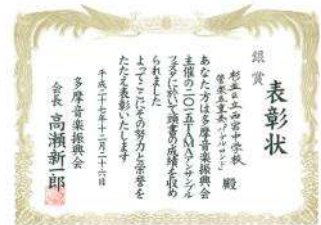 表彰状
銀賞
杉並区立西宮中学校
管楽五重奏「パデルロンド」 殿
あなた方は多摩音楽振興会
主催の二〇一五TAMAアンサンブル
フェスタに於いて頭書の成績を収め
られました
よってここにその努力と栄誉を
たたえ表彰いたします
平成二十七年十二月二十六日
多摩音楽振興会
会長 高瀬新一郎